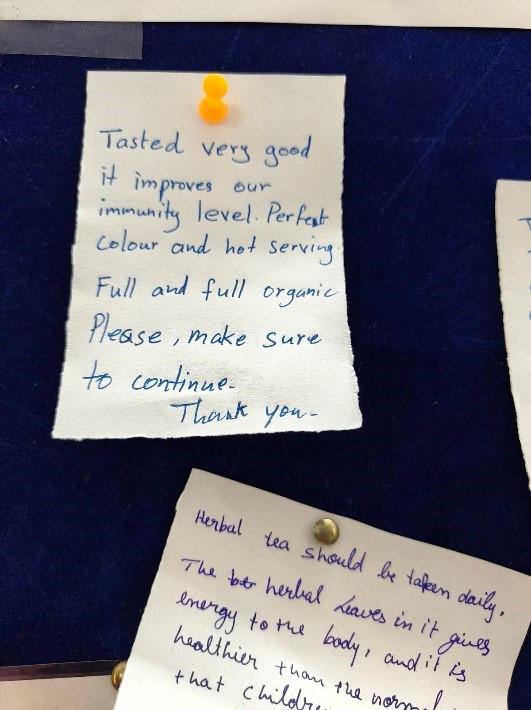 Tasted very good
it improves our
immunity level. Perfect
Colour and hot serving.
Full and full organic
Please, make sure
to continue.
Thank you-
Herbal tea should be taken daily.
The herbal leaves in it gives
energy to the body, and it is
healthier than the normal
that